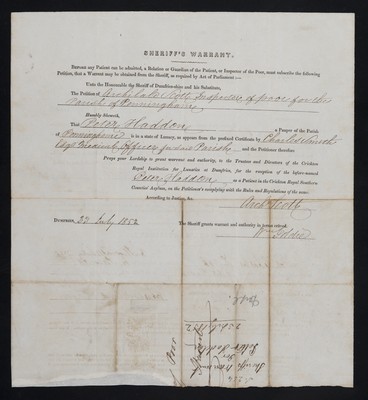 SHERIFF'S WARRANT.
BEFORE any Patient can be admitted, a Relation or Guardian of the Patient, or Inspector of the Poor, must subscribe the following
Petition, that a Warrant may be obtained from the Sheriff, as required by Act of Parliament :—
Unto the Honourable the Sheriff of Dumfries-shire and his Substitute,
The Petition of Archibald Scott Inspector of poor for the
Parish of
Humbly Sheweth,
That Peter Haddon a Pauper of the Parish
of is in a state of Lunacy, as appears from the prefixed Certificate by Charles
Esqr Medical Officer for said Parish and the Petitioner therefore
Prays your Lordship to grant warrant and authority, to the Trustees and Directors of the Crichton
Royal Institution for Lunatics at Dumfries, for the reception of the before-named
Peter Haddon as a Patient in the Crichton Royal Southern
Counties' Asylum, on the Petitioner's complying with the Rules and Regulations of the same.
According to Justice, &c.
Archd Scott
DUMFRIES, 23 July 1852 The Sheriff grants warrant and authority in terms craved.
Sheriffs Warrant
for
Peter Haddon
23 July 1852